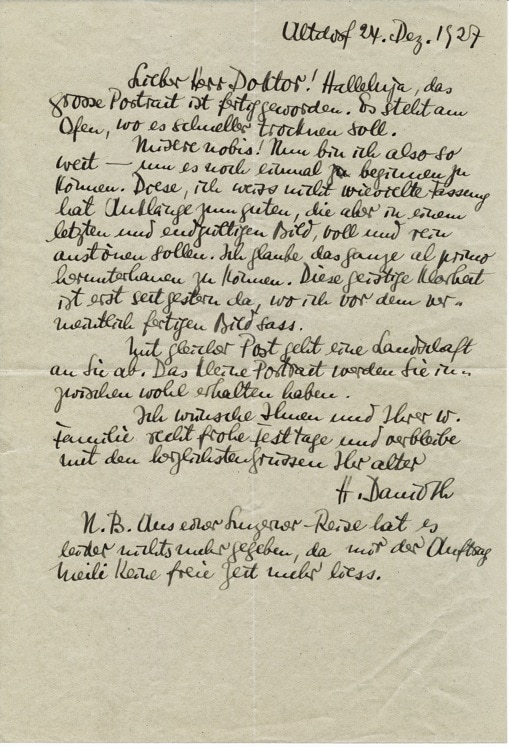 Altdorf 24. Dez. 1927
Lieber Herr Doktor! Halleluja, das
grosse Portrait ist fertig geworden. Es steht am
Ofen, wo es schneller trocknen soll.
Misere nobis! Nun bin ich also so
weit — um es noch einmal zu beginnen zu
können. Diese, ich weiss nicht wievielte Fassung
hat Anklänge zum guten, die aber in einem
letzten und endgültigen Bild, voll und rein
austönen sollen. Ich glaube das ganze al primo
herunterhauen zu können. Diese geistige Klarheit
ist erst seit gestern da, wo ich vor dem ver-
meintlich fertigen Bild sass.
Mit gleicher Post geht eine Landschaft
an Sie ab. Das kleine Portrait werden Sie in-
zwischen wohl erhalten haben.
Ich wünsche Ihnen und Ihrer w.
Familie recht frohe Festtage und verbleibe
mit den herzlichsten Grüssen Ihr alter
H. Danioth
N.B. Aus einer Reise hat es
leider nichts mehr gegeben, da mir der Auftrag
Meili keine freie Zeit mehr liess.